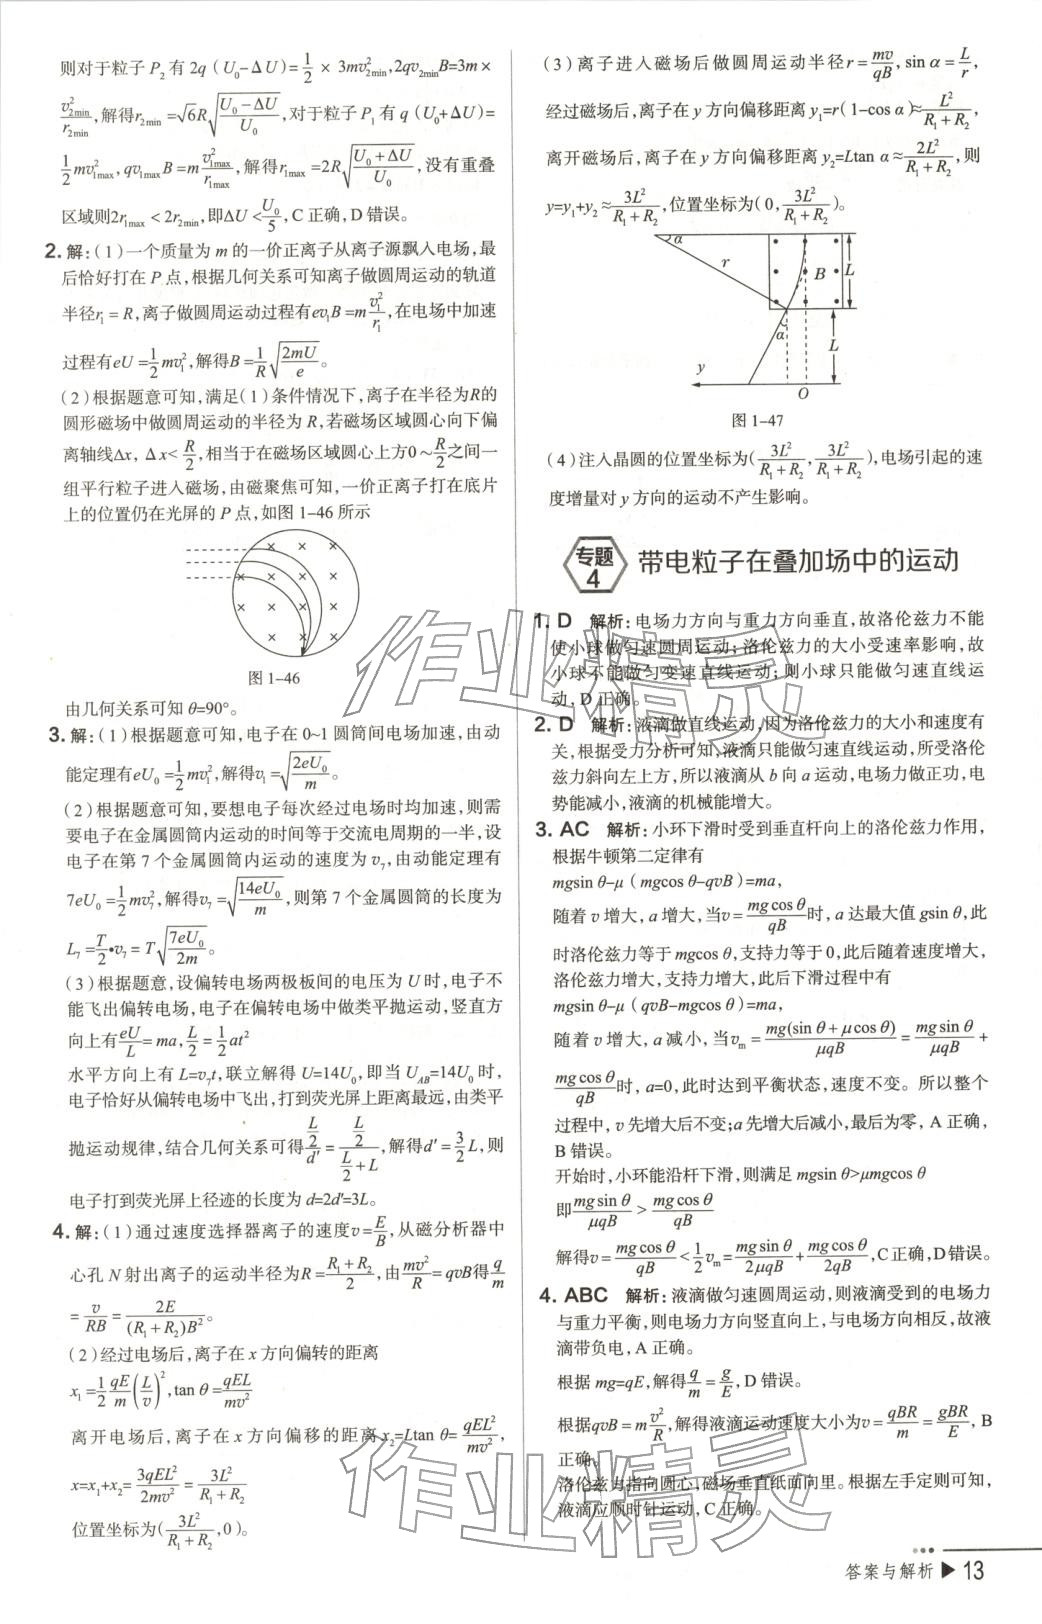 则对于粒子 P₂ 有 2q（U₀-ΔU）=1/2 × 3mv²₂min,2qv₂minB=3m×
v²₂min/r₂min,解得r₂min=√6R√((U₀-ΔU)/U₀),对于粒子 P₁ 有 q（U₀+ΔU）=
1/2 mv²₁max,qv₁maxB=m v²₁max/r₁max,解得r₁max=2R√((U₀+ΔU)/U₀),没有重叠
区域则2r₁max<2r₂min,即ΔU<U₀/5,C 正确,D 错误。
2. 解:(1)一个质量为 m 的一价正离子从离子源飘入电场,最
后恰好打在 P 点,根据几何关系可知离子做圆周运动的轨道
半径r₁=R,离子做圆周运动过程有ev₁B=m v₁²/r₁,在电场中加速
过程有eU=1/2 mv₁²,解得B=1/R √(2mU/e)。
(2)根据题意可知,满足(1)条件情况下,离子在半径为R的
圆形磁场中做圆周运动的半径为 R,若磁场区域圆心向下偏
离轴线Δx, Δx<R/2,相当于在磁场区域圆心上方0~R/2之间一
组平行粒子进入磁场,由磁聚焦可知,一价正离子打在底片
上的位置仍在光屏的 P 点,如图 1-46 所示
图 1-46
由几何关系可知 θ=90°。
3. 解:(1)根据题意可知,电子在 0~1 圆筒间电场加速,由动
能定理有eU₀=1/2 mv₁²,解得v₁=√(2eU₀/m)。
(2)根据题意可知,要想电子每次经过电场时均加速,则需
要电子在金属圆筒内运动的时间等于交流电周期的一半,设
电子在第 7 个金属圆筒内运动的速度为 v₇,由动能定理有
7eU₀=1/2 mv₇²,解得v₇=√(14eU₀/m),则第 7 个金属圆筒的长度为
L₇=T/2•v₇=T√(7eU₀/2m)。
(3)根据题意,设偏转电场两极板间的电压为 U 时,电子不
能飞出偏转电场,电子在偏转电场中做类平抛运动,竖直方
向上有eU/L=ma,L/2=1/2 at²
水平方向上有 L=v₇t,联立解得 U=14U₀,即当 U_AB=14U₀ 时,
电子恰好从偏转电场中飞出,打到荧光屏上距离最远,由类平
抛运动规律,结合几何关系可得(L/2)/d′=(L/2)/(L/2+L),解得d′=3/2 L,则
电子打到荧光屏上径迹的长度为 d=2d′=3L。
4. 解:(1)通过速度选择器离子的速度v=E/B,从磁分析器中
心孔 N 射出离子的运动半径为R=(R₁+R₂)/2,由mv²/R=qvB得q/m
=v/RB=2E/((R₁+R₂)B²)。
(2)经过电场后,离子在 x 方向偏转的距离
x₁=1/2 qE/m (L/v)²,tan θ=qEL/mv²
离开电场后,离子在 x 方向偏移的距离x₂=Ltan θ=qEL²/mv²,
x=x₁+x₂=3qEL²/2mv²=3L²/(R₁+R₂)
位置坐标为(3L²/(R₁+R₂),0)。
(3)离子进入磁场后做圆周运动半径r=mv/qB,sin α=L/r,
经过磁场后,离子在 y 方向偏移距离 y₁=r(1-cos α)≈L²/(R₁+R₂),
离开磁场后,离子在 y 方向偏移距离 y₂=Ltan α≈2L²/(R₁+R₂),则
y=y₁+y₂≈3L²/(R₁+R₂),位置坐标为(0,3L²/(R₁+R₂))。
α
r
B
L
α
L
y
O
图 1-47
(4)注入晶圆的位置坐标为(3L²/(R₁+R₂),3L²/(R₁+R₂)),电场引起的速
度增量对 y 方向的运动不产生影响。
专题4 带电粒子在叠加场中的运动
1. D 解析:电场力方向与重力方向垂直,故洛伦兹力不能
使小球做匀速圆周运动;洛伦兹力的大小受速率影响,故
小球不能做匀变速直线运动;则小球只能做匀速直线运
动,D 正确。
2. D 解析:液滴做直线运动,因为洛伦兹力的大小和速度有
关,根据受力分析可知,液滴只能做匀速直线运动,所受洛伦
兹力斜向左上方,所以液滴从 b 向 a 运动,电场力做正功,电
势能减小,液滴的机械能增大。
3. AC 解析:小环下滑时受到垂直杆向上的洛伦兹力作用,
根据牛顿第二定律有
mgsin θ-μ（mgcos θ-qvB）=ma,
随着 v 增大,a 增大,当v=mgcos θ/qB时,a 达最大值 gsin θ,此
时洛伦兹力等于 mgcos θ,支持力等于 0,此后随着速度增大,
洛伦兹力增大,支持力增大,此后下滑过程中有
mgsin θ-μ（qvB-mgcos θ）=ma,
随着 v 增大,a 减小,当vₘ=mg(sin θ+μcos θ)/μqB=mgsin θ/μqB+
mgcos θ/qB时,a=0,此时达到平衡状态,速度不变。所以整个
过程中,v 先增大后不变;a 先增大后减小,最后为零,A 正确,
B 错误。
开始时,小环能沿杆下滑,则满足 mgsin θ>μmgcos θ
即mgsin θ/μqB>mgcos θ/qB
解得v=mgcos θ/qB<1/2 vₘ=mgsin θ/2μqB+mgcos θ/2qB,C正确,D错误。
4. ABC 解析:液滴做匀速圆周运动,则液滴受到的电场力
与重力平衡,则电场力方向竖直向上,与电场方向相反,故液
滴带负电,A 正确。
根据 mg=qE,解得q/m=g/E,D 错误。
根据qvB=m v²/R,解得液滴运动速度大小为v=qBR/m=gBR/E,B
正确。
洛伦兹力指向圆心,磁场垂直纸面向里。根据左手定则可知,
液滴应顺时针运动,C 正确。
答案与解析 ▶ 13
作业精灵
作业精灵